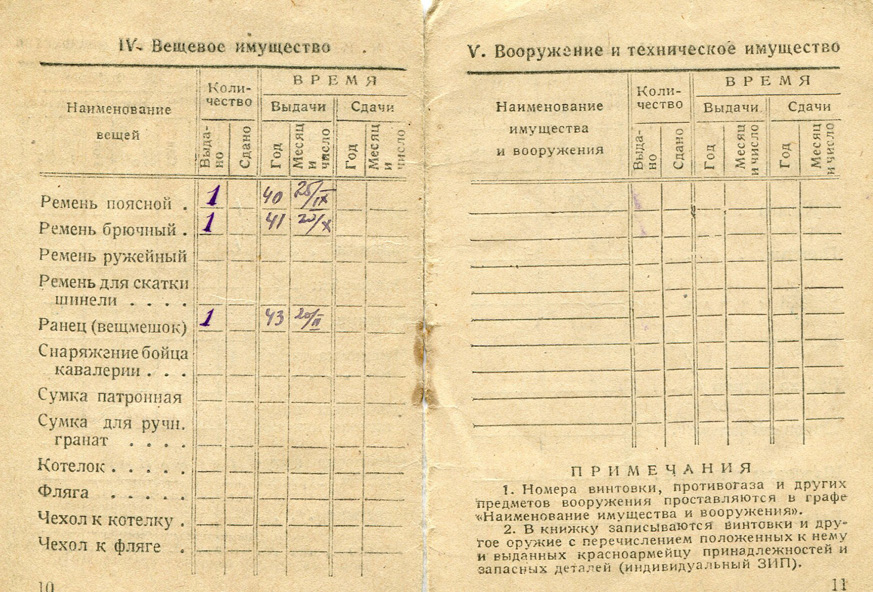 IV. Вещевое имущество
Наименование
вещей
Коли-
чество
ВРЕМЯ
Выдачи
Сдачи
Выда-
но
Сдано
Год
Месяц
и
число
Год
Месяц
и
число
Ремень поясной . 1 40 25/IX
Ремень брючный . 1 41 20/X
Ремень ружейный
Ремень для скатки
шинели . . . .
Ранец (вещмешок) 1 43 20/II
Снаряжение бойца
кавалерии . . .
Сумка патронная
Сумка для ручн.
гранат . . . .
Котелок . . . . .
Фляга . . . . .
Чехол к котелку .
Чехол к фляге .
10
V. Вооружение и техническое имущество
Наименование
имущества
и вооружения
Коли-
чество
ВРЕМЯ
Выдачи
Сдачи
Выда-
но
Сдано
Год
Месяц
и число
Год
Месяц
и число
ПРИМЕЧАНИЯ
1. Номера винтовки, противогаза и других
предметов вооружения проставляются в графе
«Наименование имущества и вооружения».
2. В книжку записываются винтовки и дру-
гое оружие с перечислением положенных к нему
и выданных красноармейцу принадлежностей и
запасных деталей (индивидуальный ЗИП).
11